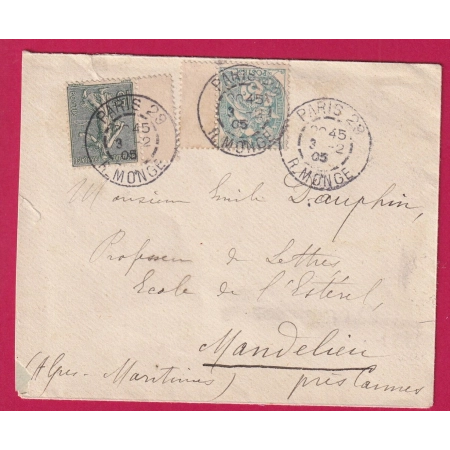 PARIS 29
20 45
3 -2
05
R. MONGE
PARIS 29
20 45
3 -2
05
R. MONGE
PARIS 29
20 45
3 -2
05
R. MONGE
Monsieur Emile Dauphin,
Professeur de Lettres
Ecole de l'Estérel,
Mandelieu
(Alpes-Maritimes) près Cannes